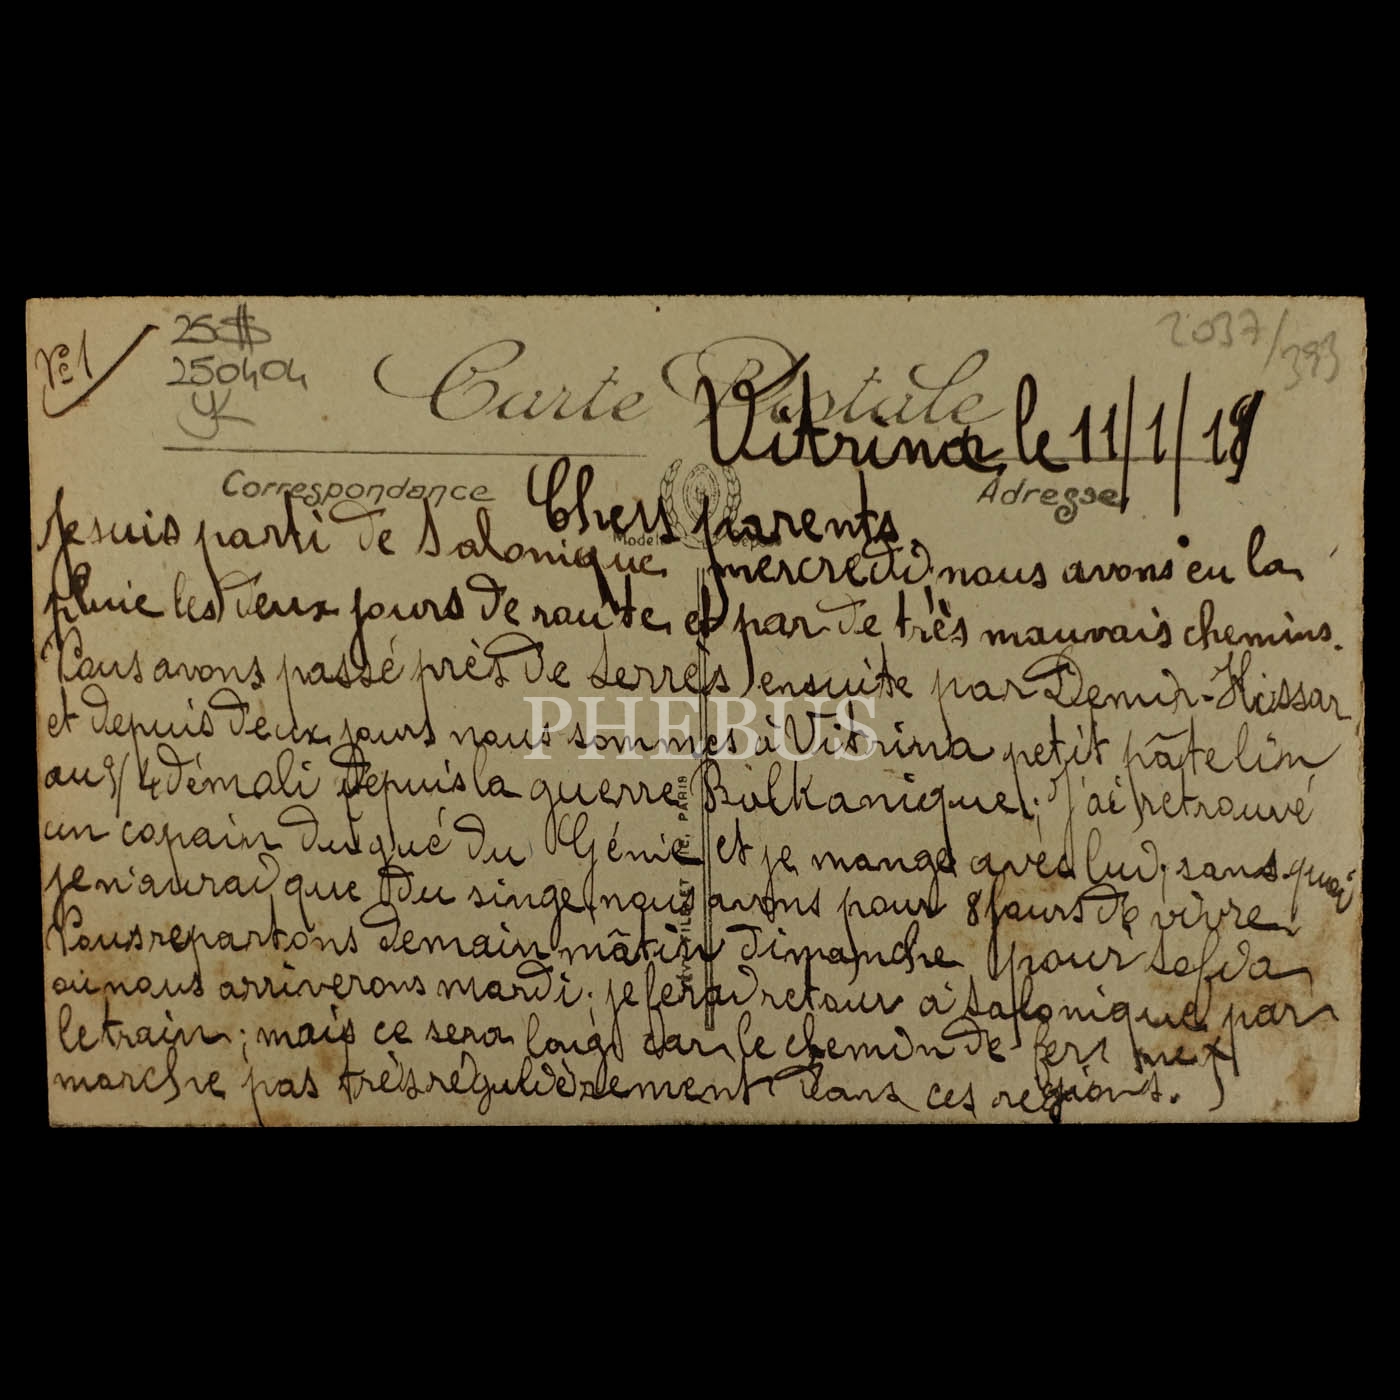 No 1
250404
2037/393
Carte Postale
Vitrina le 11/1/19
Correspondance
Adresse
Chers parents
Modèle Déposé
Je suis parti de Salonique mercredi, nous avons eu la
pluie les deux jours de route et par de très mauvais chemins.
Nous avons passé près de Serrès ensuite par Demir-Hissar
et depuis deux jours nous sommes à Vitrina petit pâtelin
au 3/4 démoli depuis la guerre Balkanique; j'ai retrouvé
un copain du gué du Génie et je mange avec lui; sans quoi
je n'aurai que du singe, nous avons pour 8 jours de vivre
Nous repartons demain mâtin dimanche pour Sofia
où nous arriverons mardi; je ferai retour à Salonique par
le train; mais ce sera long car le chemin de fer ne
marche pas très régulièrement dans ces régions.
PARIS
PHEBUS